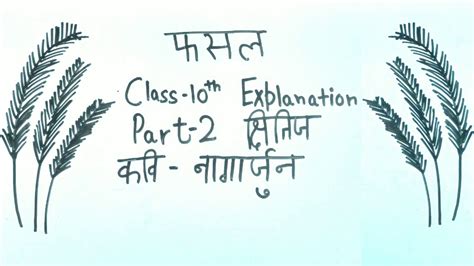 फसल
Class-10th Explanation
Part-2 क्षितिज
कवि - नागार्जुन